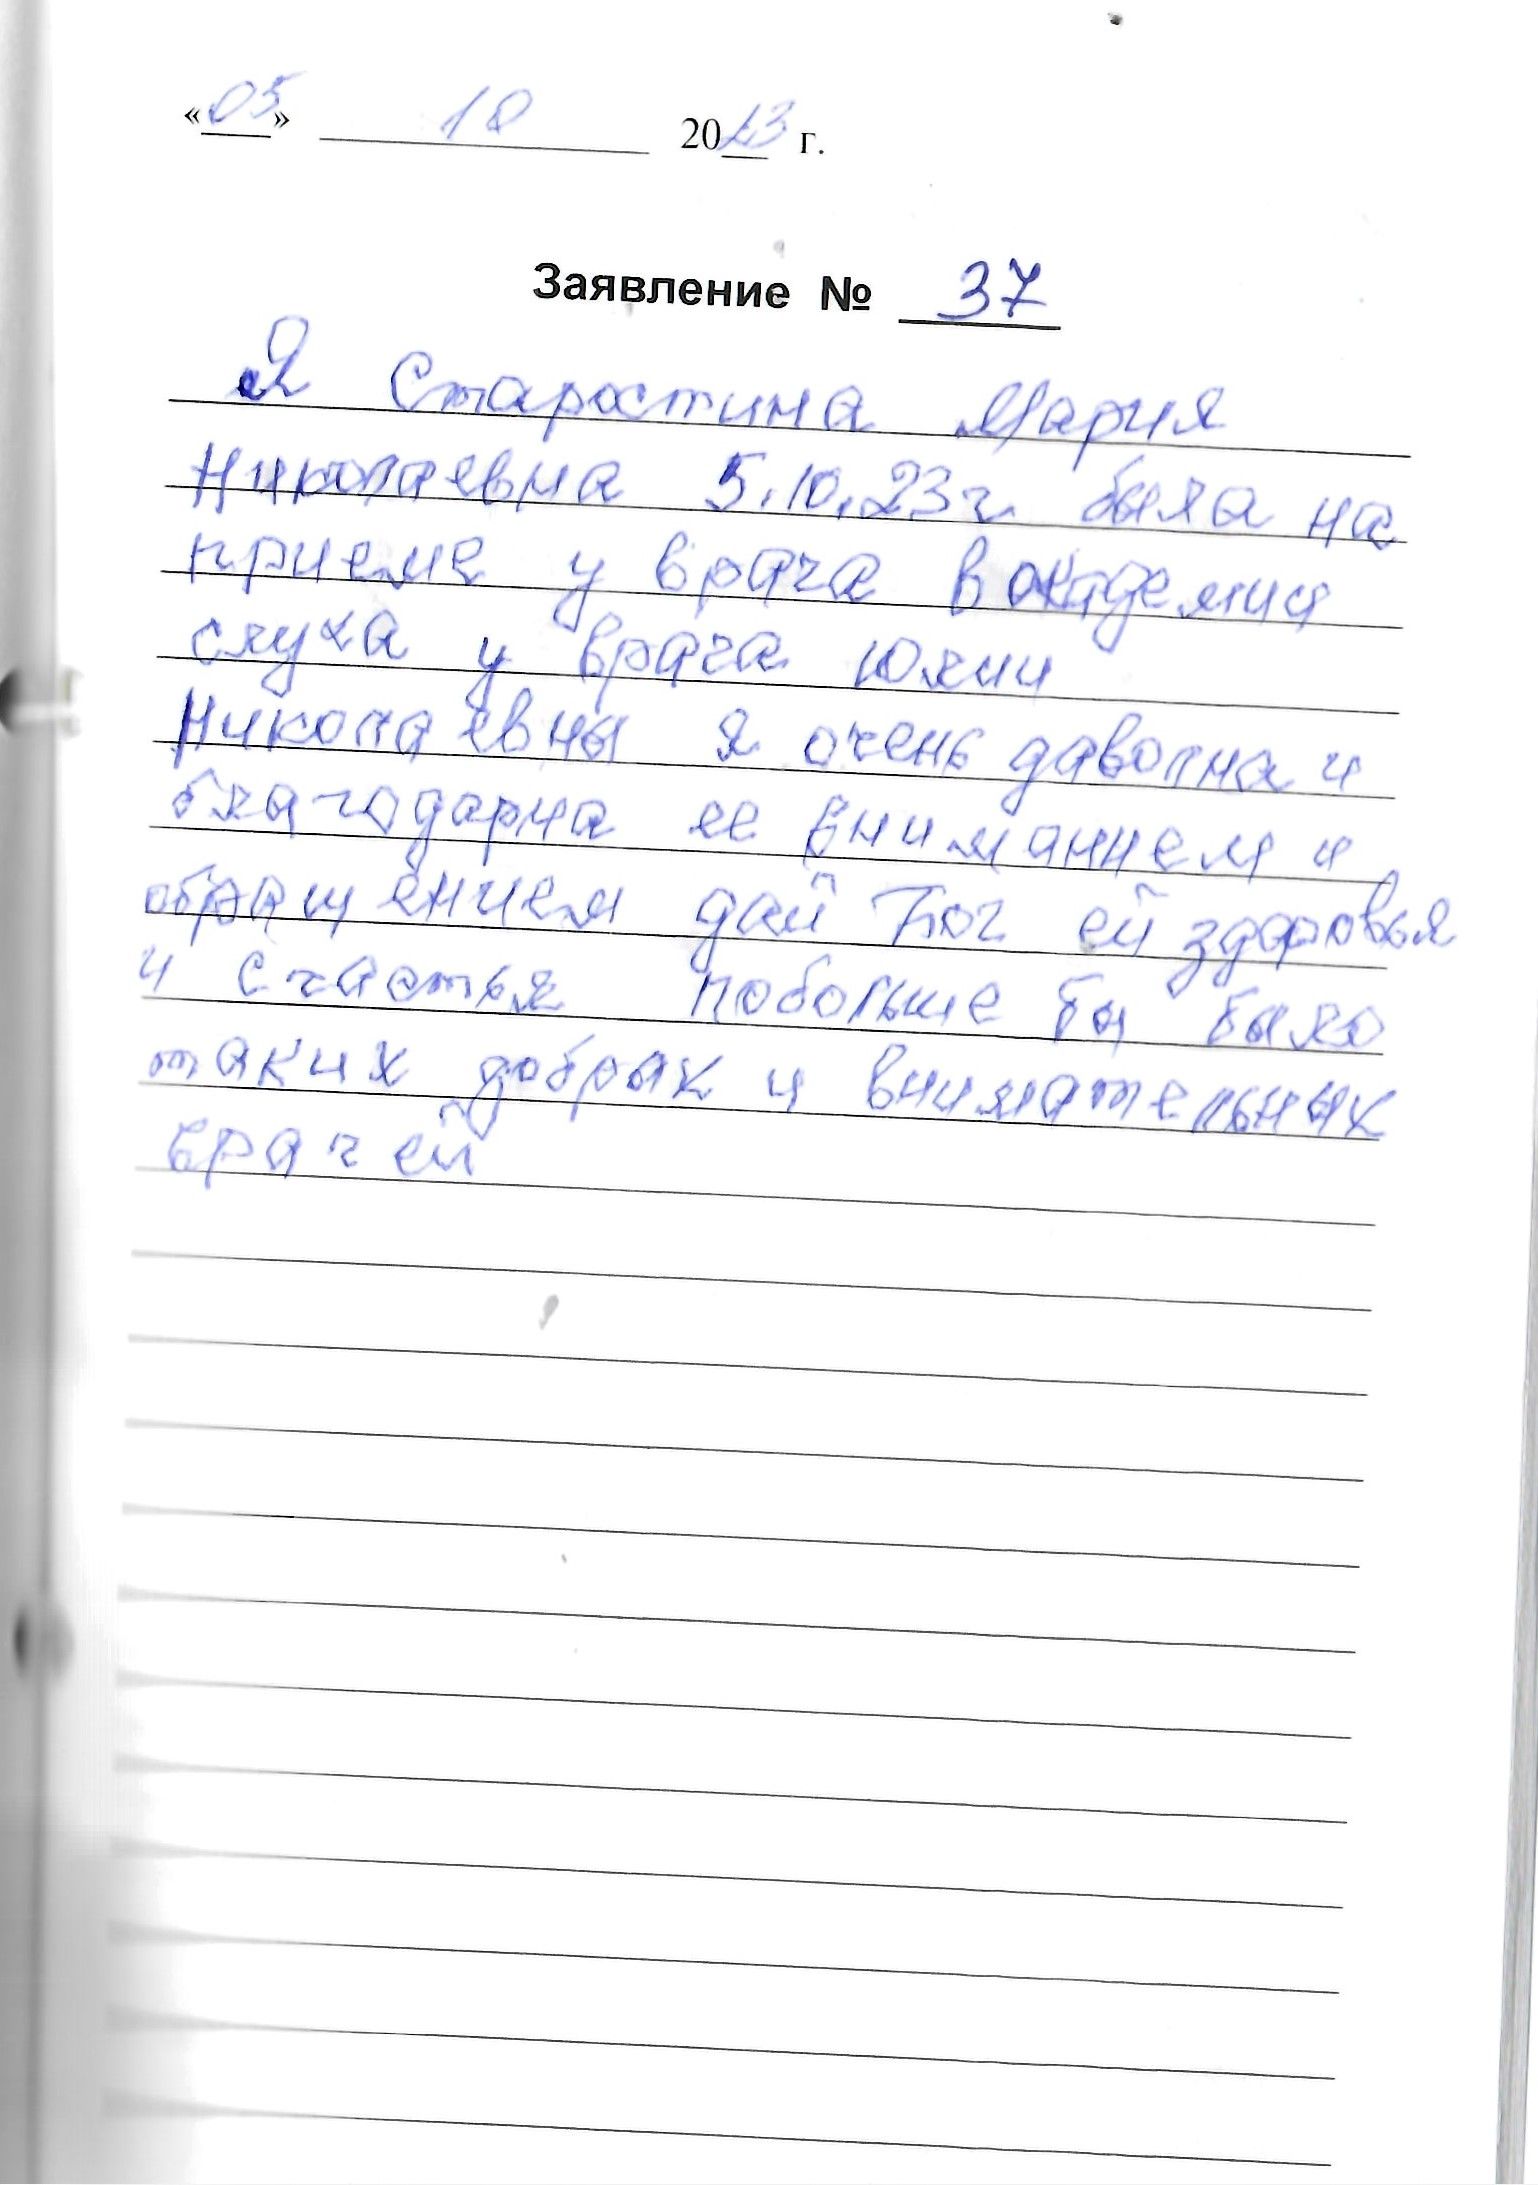 «05» 10 2023 г.
Заявление № 37
Я Старостина Мария
Николаевна 5.10.23г. была на
приеме у врача в академии
слуха у врача Юлии
Николаевны я очень даволна и
благодарна ее вниманием и
обращением дай Бог ей здоровья
и счастья побольше бы было
таких добрых и внимательных
врачей